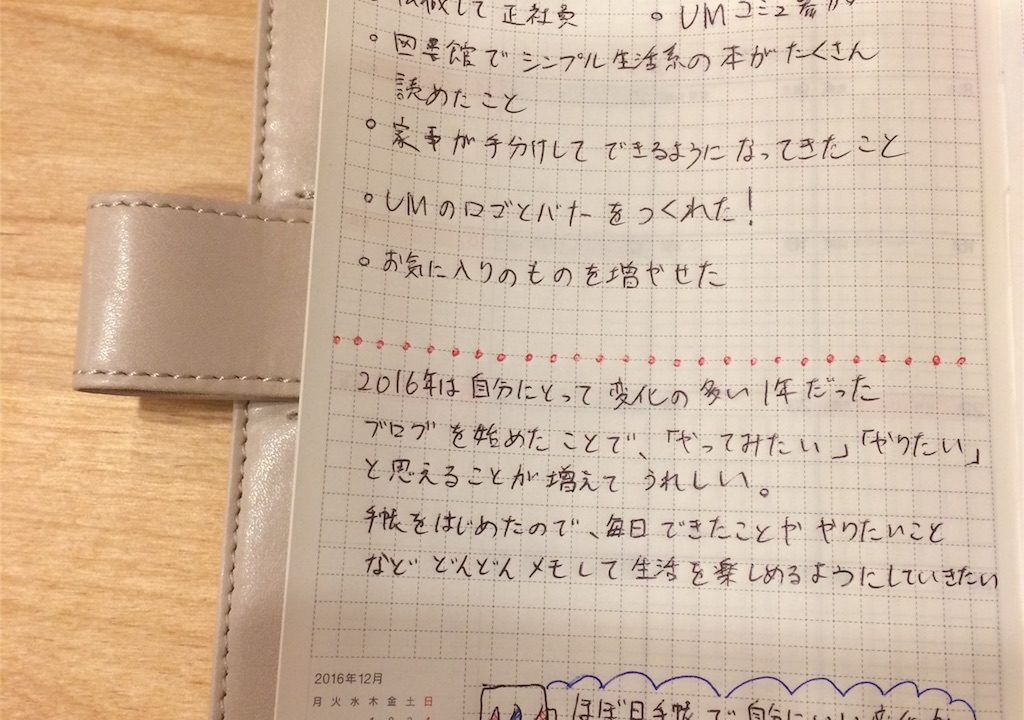 転職して正社員 ○UMコミュ
○図書館でシンプル生活系の本がたくさん
読めたこと
○家事が手分けしてできるようになってきたこと
○UMのロゴとバナーをつくれた!
○お気に入りのものを増やせた
2016年は自分にとって変化の多い1年だった
ブログを始めたことで、「やってみたい」「やりたい」
と思えることが増えてうれしい。
手帳をはじめたので、毎日できたことややりたいこと
などどんどんメモして生活を楽しめるようにしていきたい
2016年12月
月 火 水 木 金 土 日
1 2 3 4
ほぼ日手帳で自分にいい